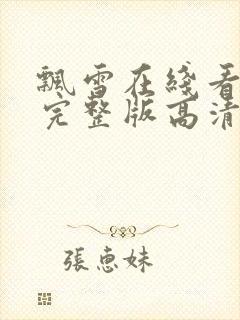 飄雪在綫看
完整版高清
張惠妹